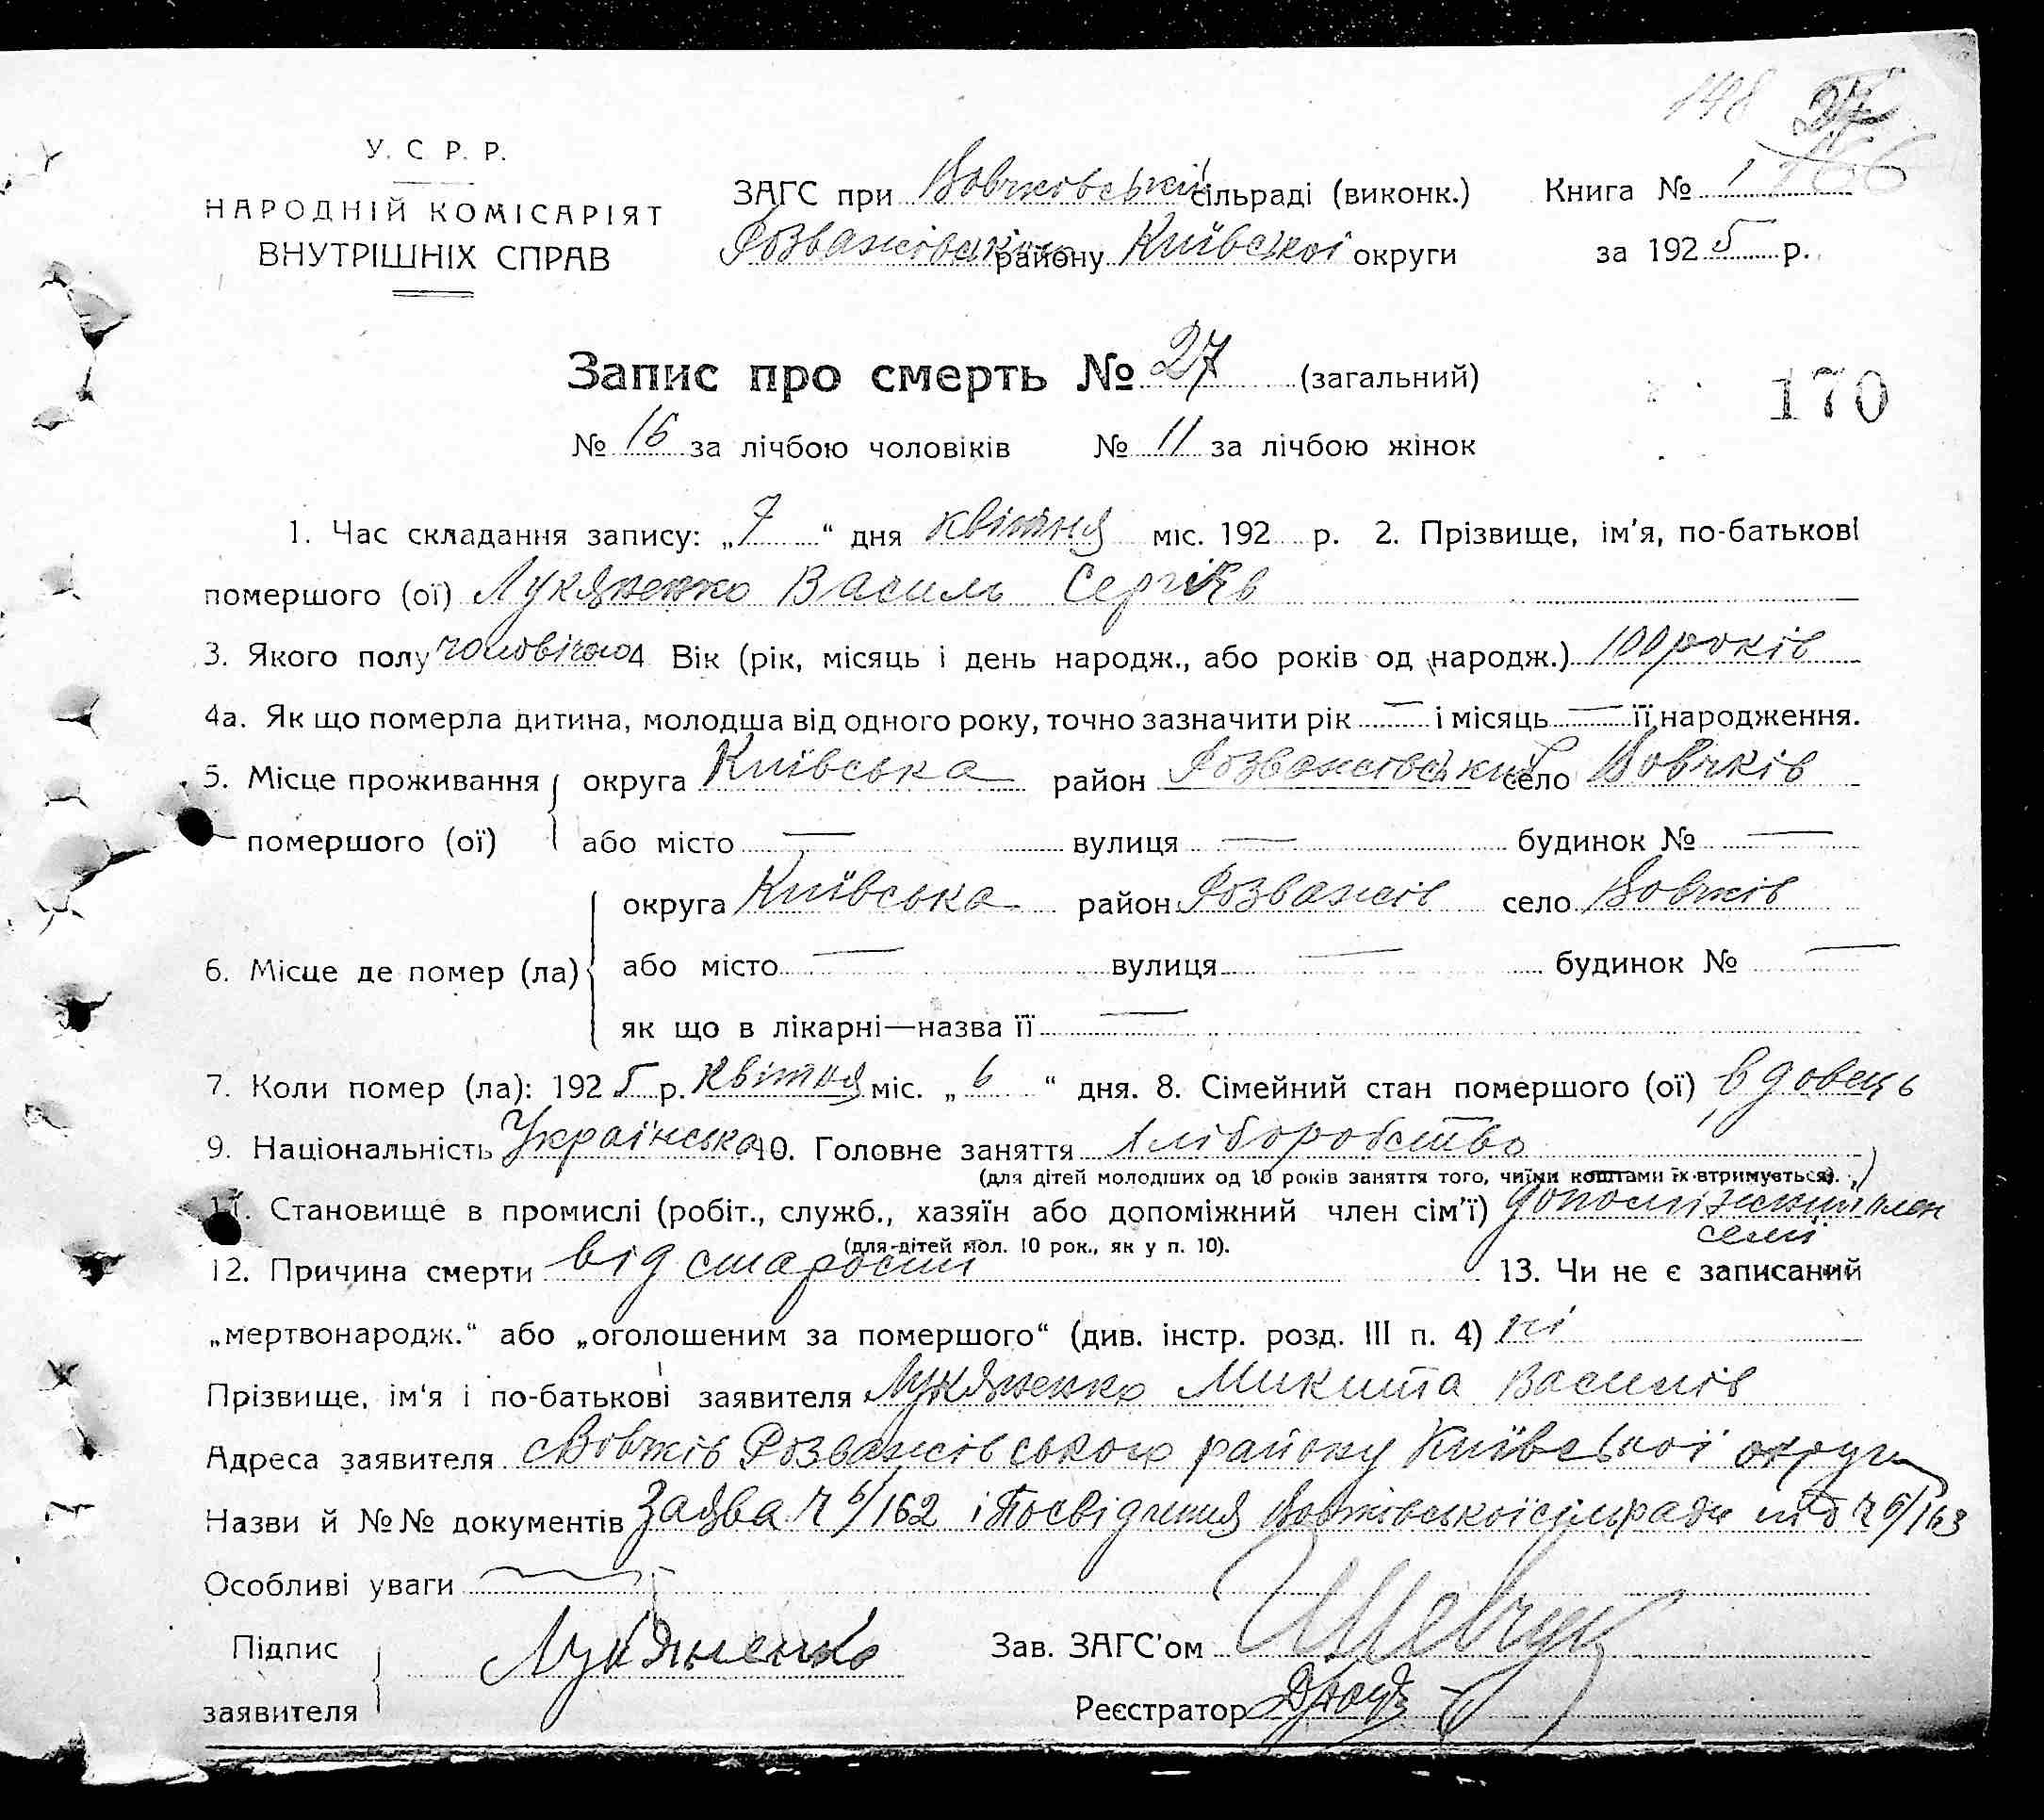 148
166
У. С Р. Р.
НАРОДНІЙ КОМІСАРІЯТ
ВНУТРІШНІХ СПРАВ
ЗАГС при Вовчківській сільраді (виконк.) Книга № 1
Розважівського району Київської округи за 1925 р.
Запис про смерть № 27 (загальний)
170
№ 16 за лічбою чоловіків № 11 за лічбою жінок
1. Час складання запису: „7“ дня квітня міс. 192 р. 2. Прізвище, ім'я, по-батькові
помершого (ої) Лукяненко Василь Сергіїв
3. Якого полу чоловічого 4 Вік (рік, місяць і день народж., або років од народж.) 100 років
4а. Як що померла дитина, молодша від одного року, точно зазначити рік — і місяць — її народження.
5. Місце проживання округа Київська район Розважівський село Вовчків
помершого (ої) або місто — вулиця — будинок № —
округа Київська район Розважів село Вовчків
6. Місце де помер (ла) або місто — вулиця — будинок № —
як що в лікарні—назва її —
7. Коли помер (ла): 1925 р. квітня міс. „6“ дня. 8. Сімейний стан помершого (ої) вдовець
9. Національність Українська 10. Головне заняття хліборобство
(для дітей молодших од 10 років заняття того, чиїми коштами їх втримується).
11. Становище в промислі (робіт., служб., хазяїн або допоміжний член сім'ї) допоміжний член
семї
(для дітей мол. 10 рок., як у п. 10).
12. Причина смерти від старости 13. Чи не є записаний
„мертвонародж.“ або „оголошеним за помершого“ (див. інстр. розд. III п. 4) ні
Прізвище, ім'я і по-батькові заявителя Лукяненко Микита Василів
Адреса заявителя с Вовчків Розважівського району Київської округи
Назви й №№ документів Заява ч 6/162 і Посвідчення Вовчківської сільради під ч 6/163
Особливі уваги
Підпис заявителя Лукяненко Зав. ЗАГС'ом Шевчук
Реєстратор